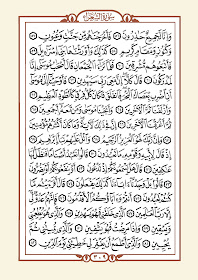 سورة الشعراء
وإنا لجميع حاذرون فأخرجناهم من جنات وعيون
وكنوز ومقام كريم كذلك وأورثناها بني إسرائيل
فأتبعوهم مشرقين فلما تراءى الجمعان قال أصحاب موسى إنا
لمدركون قال كلا إن معي ربي سيهدين فأوحينا إلى موسى
أن اضرب بعصاك البحر فانفلق فكان كل فرق كالطود العظيم
وأزلفنا ثم الآخرين وأنجينا موسى ومن معه أجمعين
ثم أغرقنا الآخرين إن في ذلك لآية وما كان أكثرهم مؤمنين
وإن ربك لهو العزيز الرحيم واتل عليهم نبأ إبراهيم إذ
قال لأبيه وقومه ما تعبدون قالوا نعبد أصناما فنظل لها
عاكفين قال هل يسمعونكم إذ تدعون أو ينفعونكم أو يضرون
قالوا بل وجدنا آباءنا كذلك يفعلون قال أفرأيتم ما
كنتم تعبدون أنتم وآباؤكم الأقدمون فإنهم عدو لي
إلا رب العالمين الذي خلقني فهو يهدين والذي هو يطعمني
ويسقين وإذا مرضت فهو يشفين والذي يميتني ثم
يحيين والذي أطمع أن يغفر لي خطيئتي يوم الدين
٣٠٩